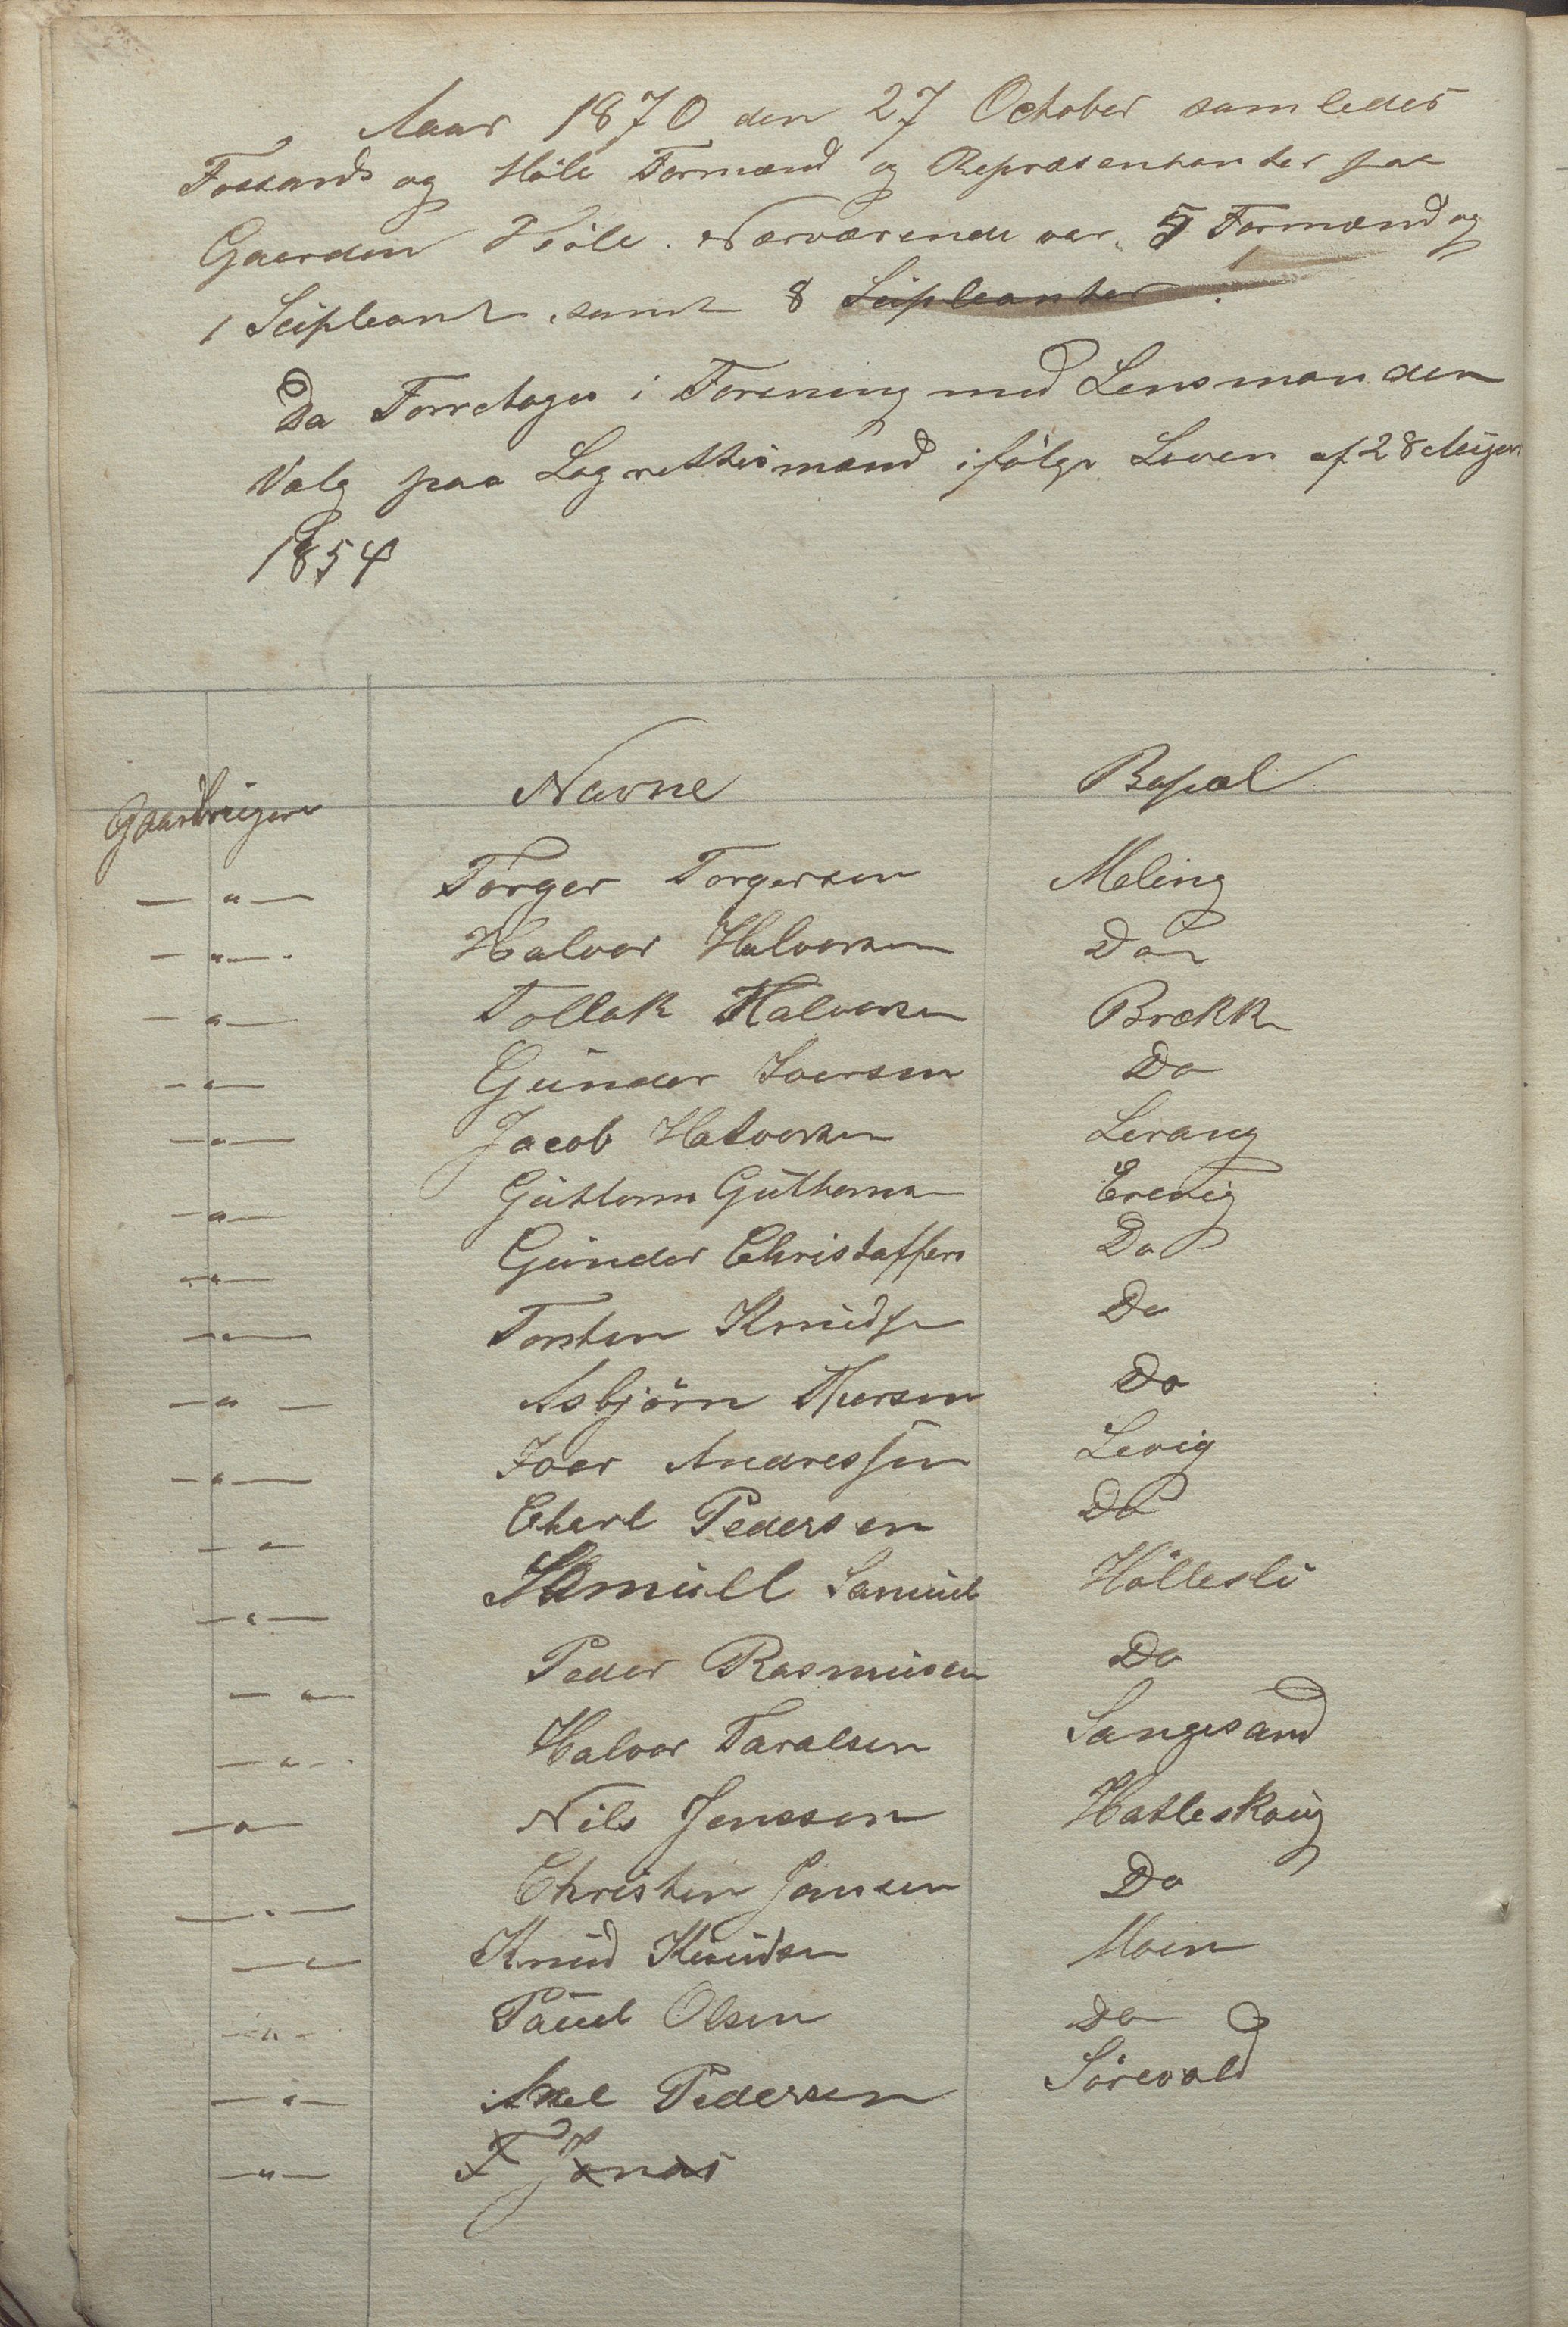 Aaar 1870 den 27 October samledes
Fossands og Höle Formænd og Repræsentanter paa
Gaarden Höle. Nærværende var 5 Formænd og
1 Seipleant. samt 8 Seipleanter.
Da Forretoges i Forening med Lensmanden
Valg paa Lagrettesmænd i fölge Loven af 28
1854
Gaardbruger Navne Bopæl
— " — Torger Torgersen Meling
— " — Halvor Halvorsen Do
— " — Tollak Halvorsen Brækk
— " — Gunder Iversen Do
— " — Jacob Halvorsen Lerang
— " — Guttorm Guttorms Erevig
— " — Gunder Christoffers Do
— " — Torsten Knudsen Do
— " — Asbjörn Do
— " — Iver Andressen Levig
— " — Pedersen Do
— " — Samuell Samuels Höllesli
— " — Peder Rasmusen Do
— " — Halvor Taralsen Sangesand
— " — Nils Jenssen Hatleskoug
— " — Christen Jansen Do
— " — Knud Knudsen Moen
— " — Paul Olsen Do
— " — Axel Pedersen Sörevold
— " — T Jonas